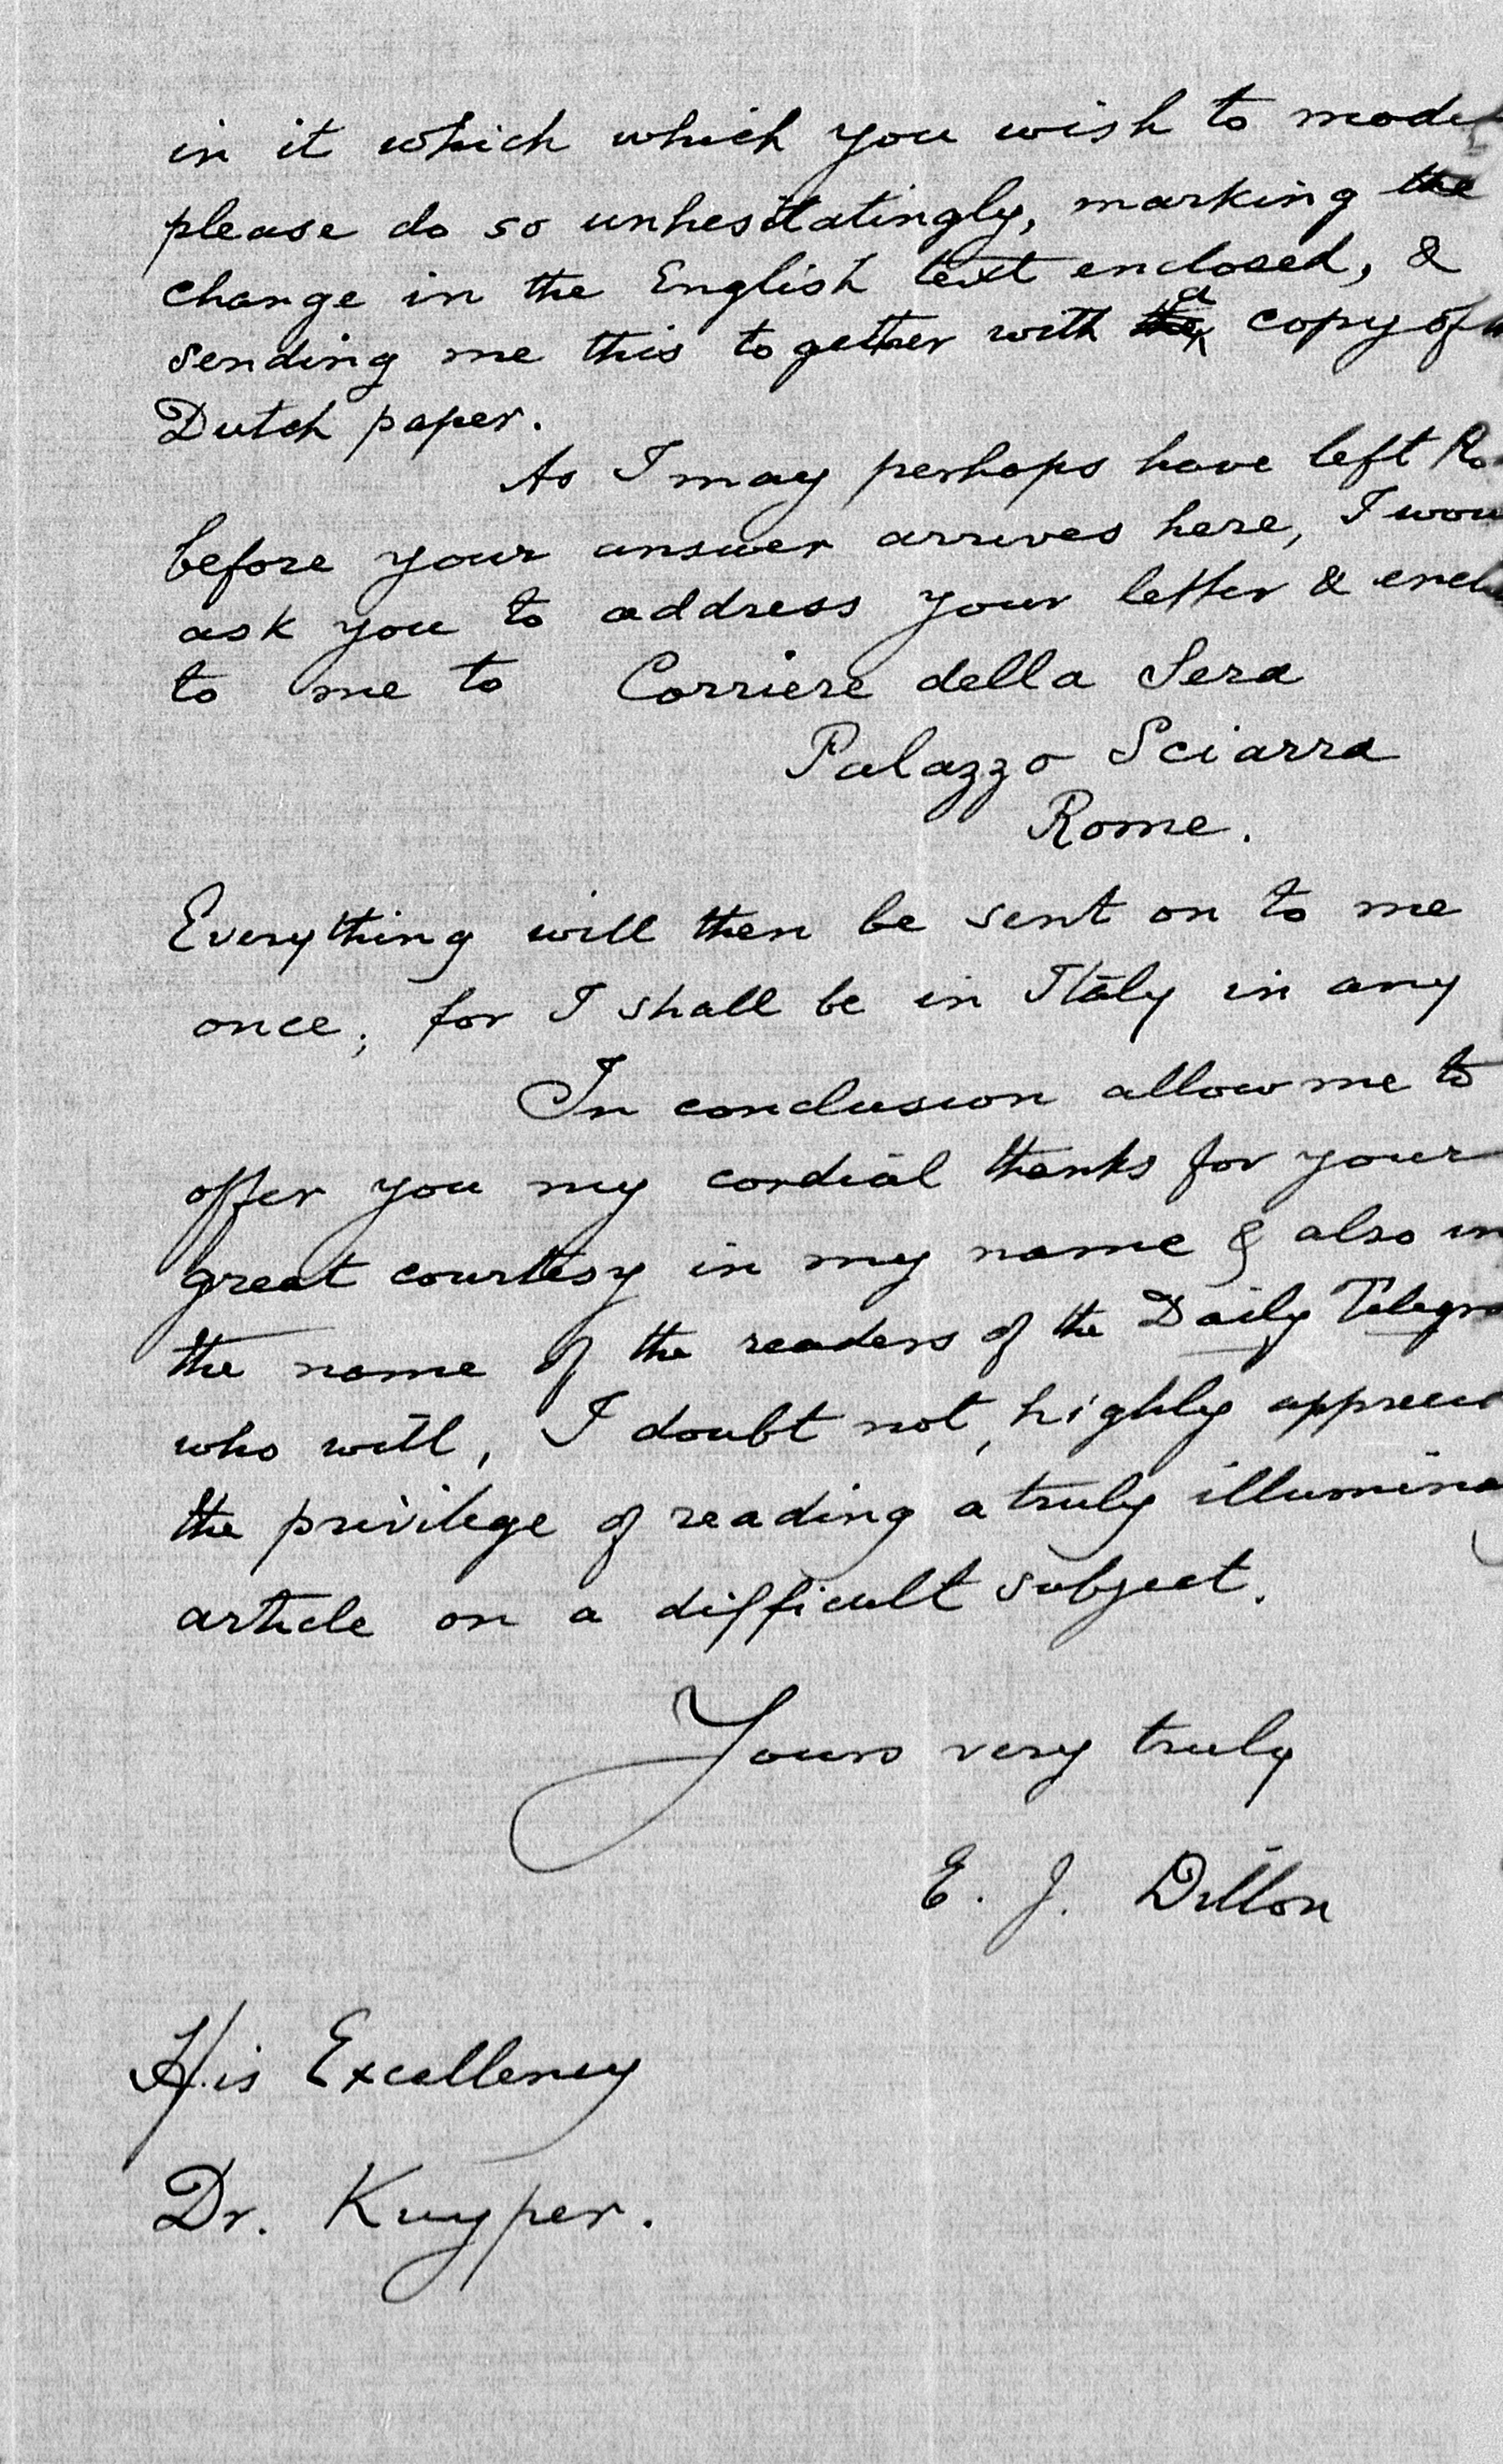 in it which which you wish to mod
please do so unhesitatingly, marking the
change in the English text enclosed, &
sending me this together with the a copy of
Dutch paper.
As I may perhaps have left Ro
before your answer arrives here, I wou
ask you to address your letter & encl
to me to Corriere della Sera
Palazzo Sciarra
Rome.
Everything will then be sent on to me
once; for I shall be in Italy in any
In conclusion allow me to
offer you my cordial thanks for your
great courtesy in my name & also in
the name of the readers of the Daily Telegra
who will, I doubt not, highly apprec
the privilege of reading a truly illumina
article on a difficult subject.
Yours very truly
E. J. Dillon
His Excellency
Dr. Kuyper.